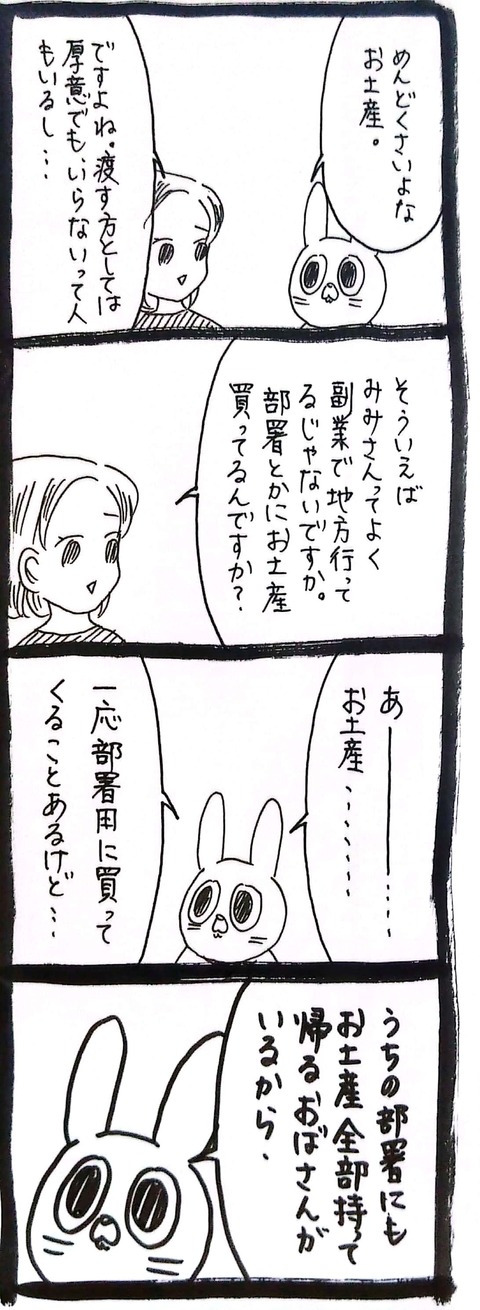 めんどくさいよな
お土産。
ですよね。渡す方としては
厚意でも、いらないって人
もいるし…
そういえば
みみさんってよく
副業で地方行って
るじゃないですか。
部署とかにお土産
買ってるんですか？
あ―――…
お土産………
一応部署用に買って
くることあるけど…
うちの部署にも
お土産全部持って
帰るおばさんが
いるから、